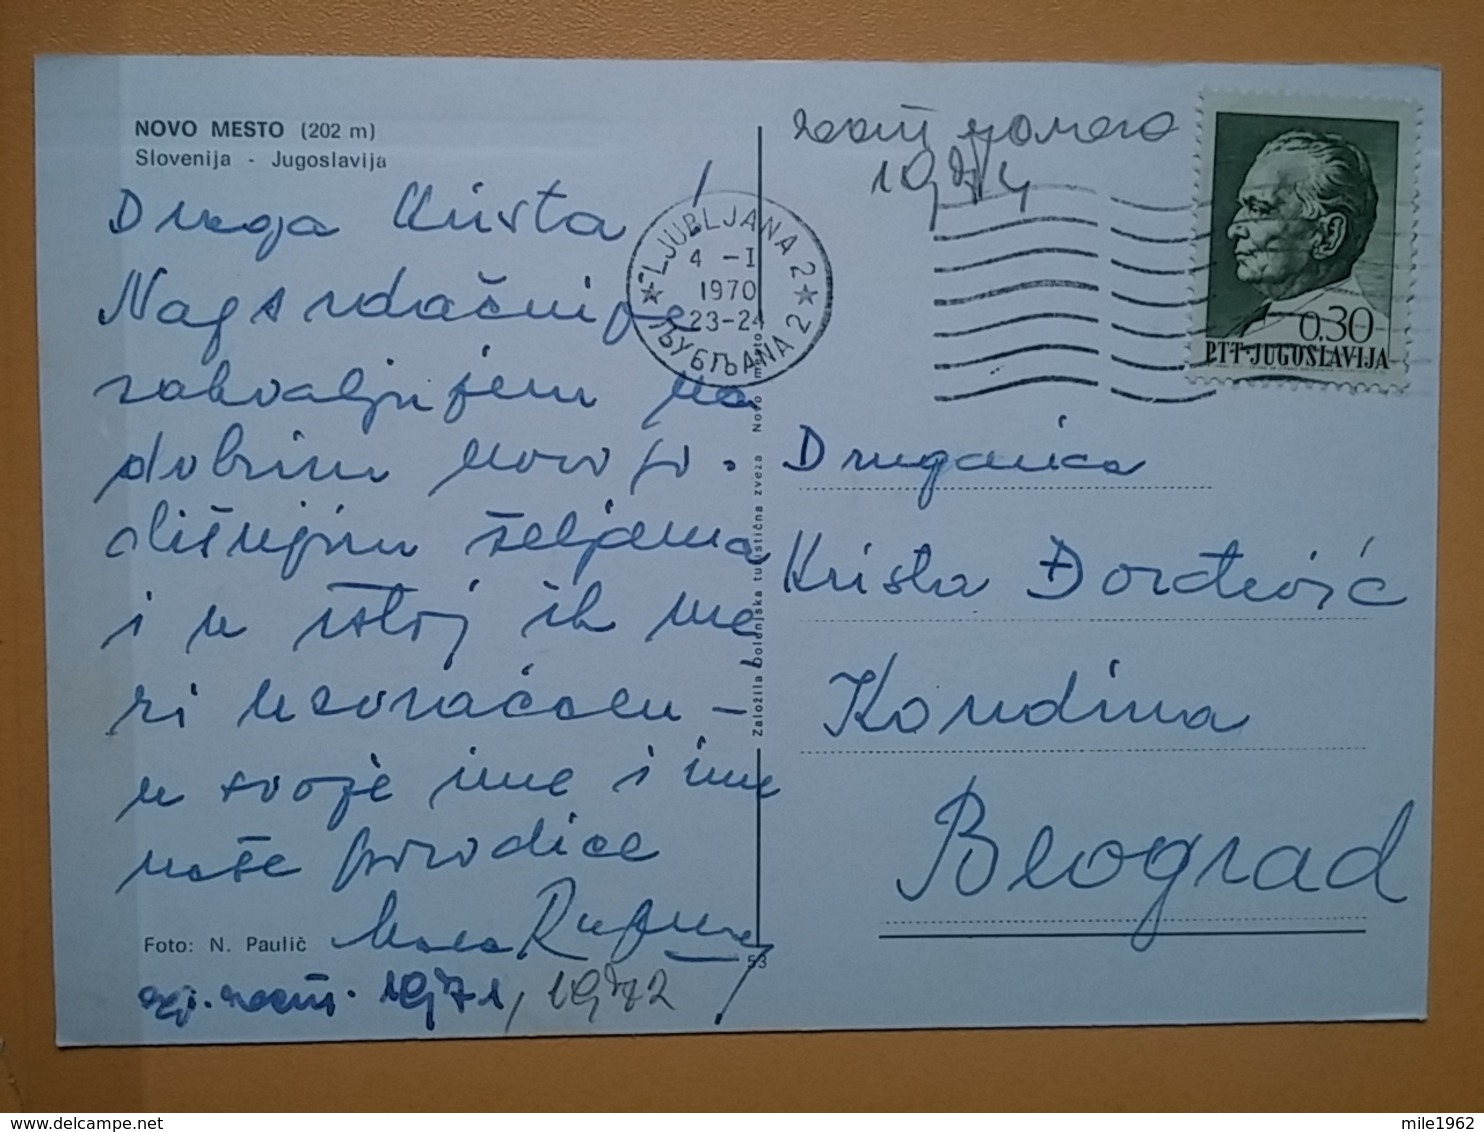 NOVO MESTO (202 m)
Slovenija - Jugoslavija
Draga Krista!
Najsrdačnije
zahvaljujem na
dobrim novogo-
dišnjim željama
i u istoj ih me
ri uzvraćam -
u svoje ime i ime
naše porodice
Foto: N. Paulič
1971, 1972
53
Založila Dolenjska turistična zveza Novo mesto
LJUBLJANA 2
4 -I
1970
23-24
ЉУБЉАНА 2
čest
1974
0,30
PTT·JUGOSLAVIJA
Drugarica
Krista Đorđević
Kondina
Beograd
mile1962